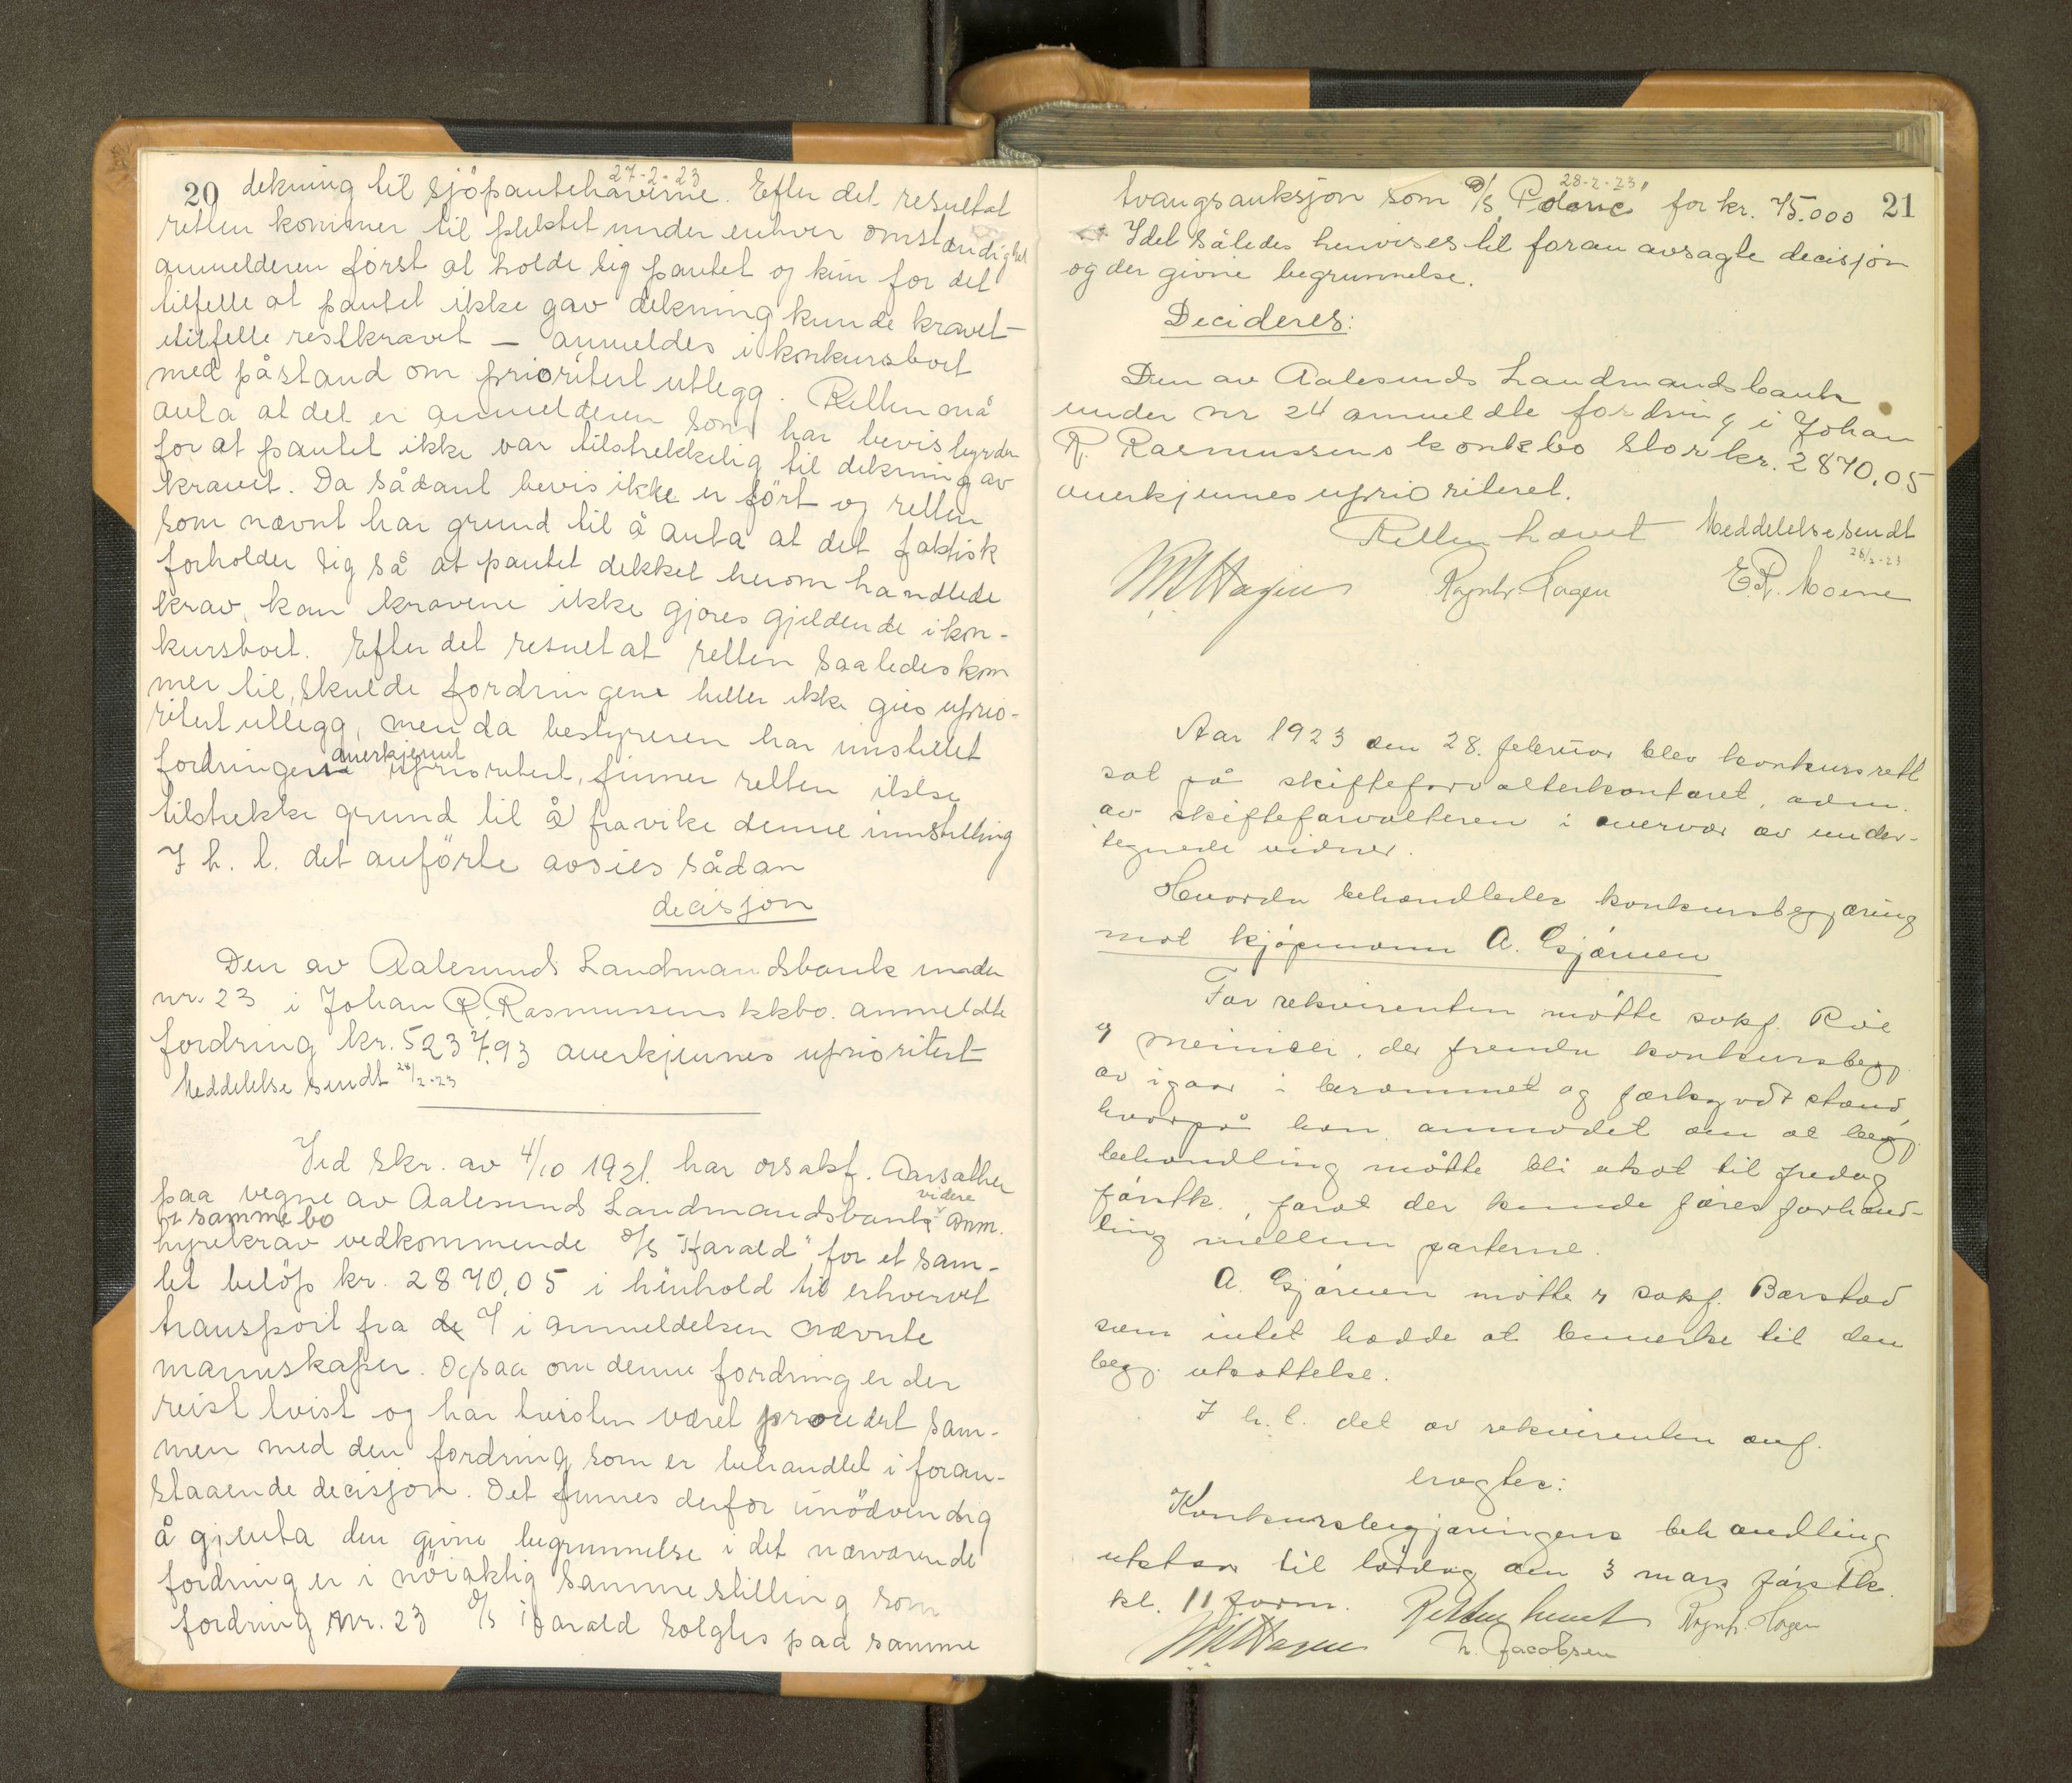 20
27-2-23
dekning til sjöpantehaverne. Efter det resultat
retten kommer til pliktet under enhver omstændighet
anmelderen först at holde sig pantet og kun for det
tilfelle at pantet ikke gav dekning kunde kravet –
itilfelle restkravet – anmeldes i konkursboet
med påstand om prioritert utlegg. Retten må
anta at det er anmelderen som har bevisbyrden
for at pantet ikke var tilstrekkelig til dekning av
kravet. Da sådant bevis ikke er fört og retten
som nævnt har grund til å anta at det faktisk
forholder sig så at pantet dekket herom handlede
krav, kan kravene ikke gjöres gjeldende i kon-
kursboet. Efter det resultat retten saaledes kom
mer til, skulde fordringene heller ikke gies uprio-
ritert utlegg, men da bestyreren har innstillet
fordringene anerkjennt uprioritert, finner retten ikke
tilstrekke grund til å fravike denne innstilling
I h. t. det anförte avsies sådan
decisjon
Den av Aalesunds Landmandsbank under
nr. 23 i Johan R. Rasmussens kkbo. anmeldte
fordring kr. 5237.93 anerkjennes uprioritert
Meddelelse sendt 28/2-23
Ved skr. av 4/10 1921. har orsakf. Aarsæther
paa vegne av Aalesunds Landmandsbank videre anm.
i samme bo
hyrekrav vedkommende D/S "Harald" for et sam-
let belöp kr. 2870.05 i henhold til erhvervet
transport fra de 7 i anmeldelsen nævnte
mannskaper. Ogsaa om denne fordring er der
reist tvist og har tvisten været procedert sam-
men med den fordring som er behandlet i foran-
staaende decisjon. Det finnes derfor unödvendig
å gjenta den givne begrunnelse i det nærværende
fordring er i nöiaktig samme stilling som
fordring nr. 23 D/S Harald solgtes paa samme
28-2-23
21
tvangsauksjon som D/S "Polaric" for kr. 75.000
Idet således henvises til foran avsagte decisjon
og der givne begrunnelse.
Decideres:
Den av Aalesunds Landmandsbank
under nr 24 anmeldte fordring i Johan
R. Rasmussens konkbo stor kr. 2870.05
anerkjennes uprioriteret.
Retten hævet Meddelelse sendt
28/2-23
Hagen Ragnh. Hagen E.R. Moene
Aar 1923 den 28. februar blev konkursrett
sat på skifteforvalterkontoret, adm.
av skifteforvalteren i overvær av under-
tegnede vidner.
Hvorda behandledes konkursbegjæring
mot kjøpmann A. Gjærnen
For rekvirenten møtte sakf.
der fremla konkursbegj.
av igaar i berammet og forkyndt stand,
hvorpå han anmodet om at begj.
behandling måtte bli utsat til fredag
förstk., forat der kunde föres forhand-
ling mellem parterne.
A. Gjærnen møtte v sakf. Barstad
som intet hadde at bemerke til den
begj. utsættelse.
I h. t. det av rekvirenten anf.
vægtes:
Konkursbegjæringens behandling
utstaar til lördag den 3 mars förstk.
kl. 11 form. Retten hævet Ragnh. Hagen
Hagen Jacobsen